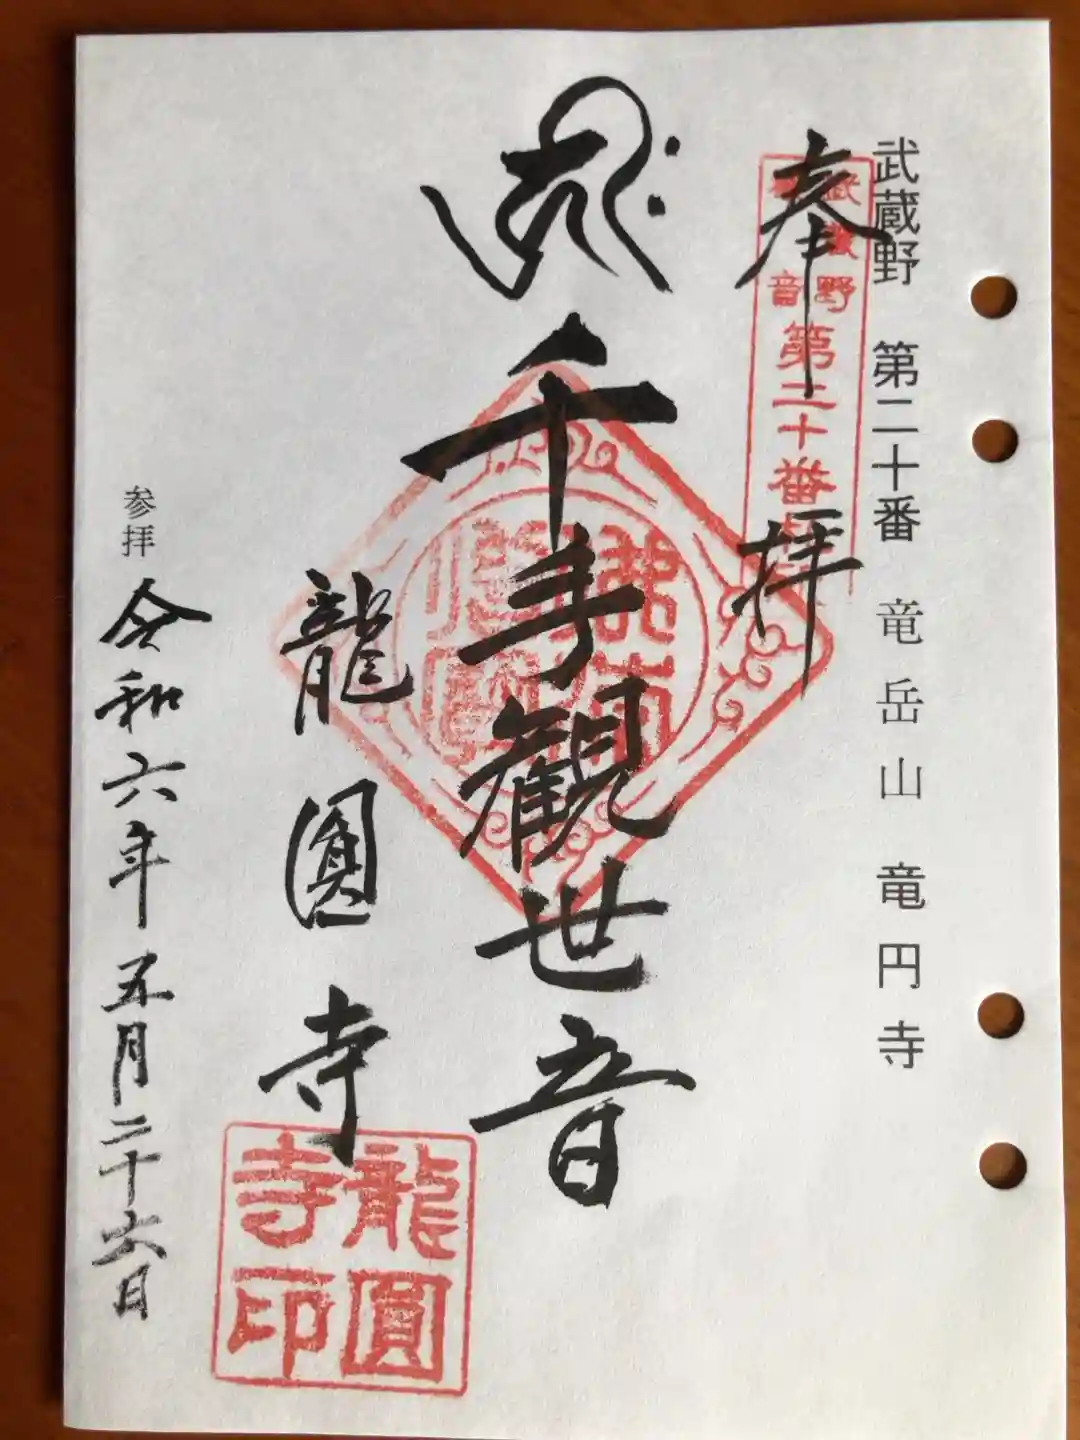 武蔵野 第二十番 竜岳山 竜円寺
奉拝
武蔵野
音
第二十番
千手観世音
龍圓寺
龍圓
寺印
参拝 令和六年五月二十六日